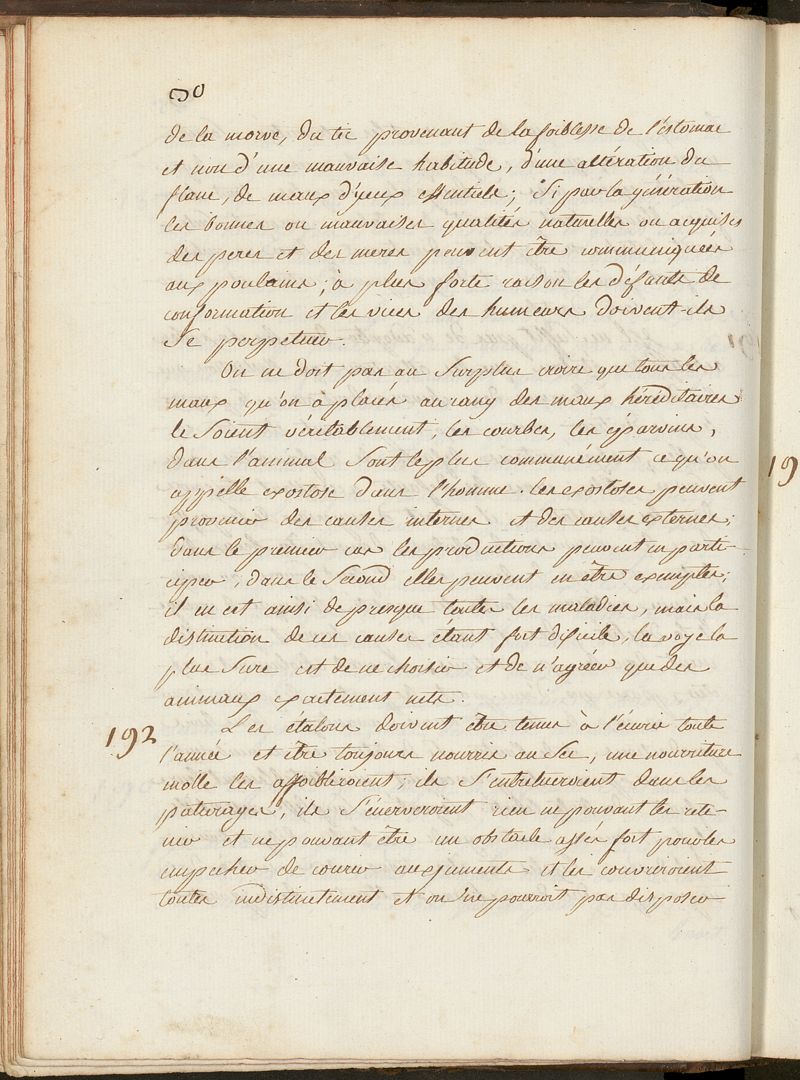 90
de la morve, du tic provenant de la foiblesse de l'estomac
et non d'une mauvaise habitude, d'une altération du
flanc, de maux d'yeux essentiels; Si par la génération
les bonnes ou mauvaises qualités naturelles ou acquises
des peres et des meres peuvent être communiquées
aux poulains; à plus forte raison les défauts de
conformation et les vices des humeurs doivent-ils
Se perpetuer.
On ne doit pas au Surplus croire que tous les
maux qu'on à placés au rang des maux héréditaires
le Soient véritablement, les courbes, les éparvins,
dans l'animal Sont le plus communément ce qu'on
appelle exostose dans l'homme. les exostoses peuvent
provenir des causes internes et des causes externes;
dans le premier cas les productions peuvent en parti-
ciper, dans le Second elles peuvent en être exemptes;
il en est ainsi de presque toutes les maladies, mais la
distinction de ces causes étant fort dificile, la voye la
plus Sure est de ne choisir et de n'agréer que des
animaux exactement nets.
192 Les étalons doivent être tenus à l'écurie toute
l'année et être toujours nourris au Sec, une nourriture
molle les affoibliroient; ils S'entretueroient dans les
paturages, ils S'énerveroient rien ne pouvant les rete-
nir et ne pouvant être un obstacle assés fort pour les
empecher de courir aux juments et les couvriroient
toutes indistinctement et on ne pourroit pas disposer
19